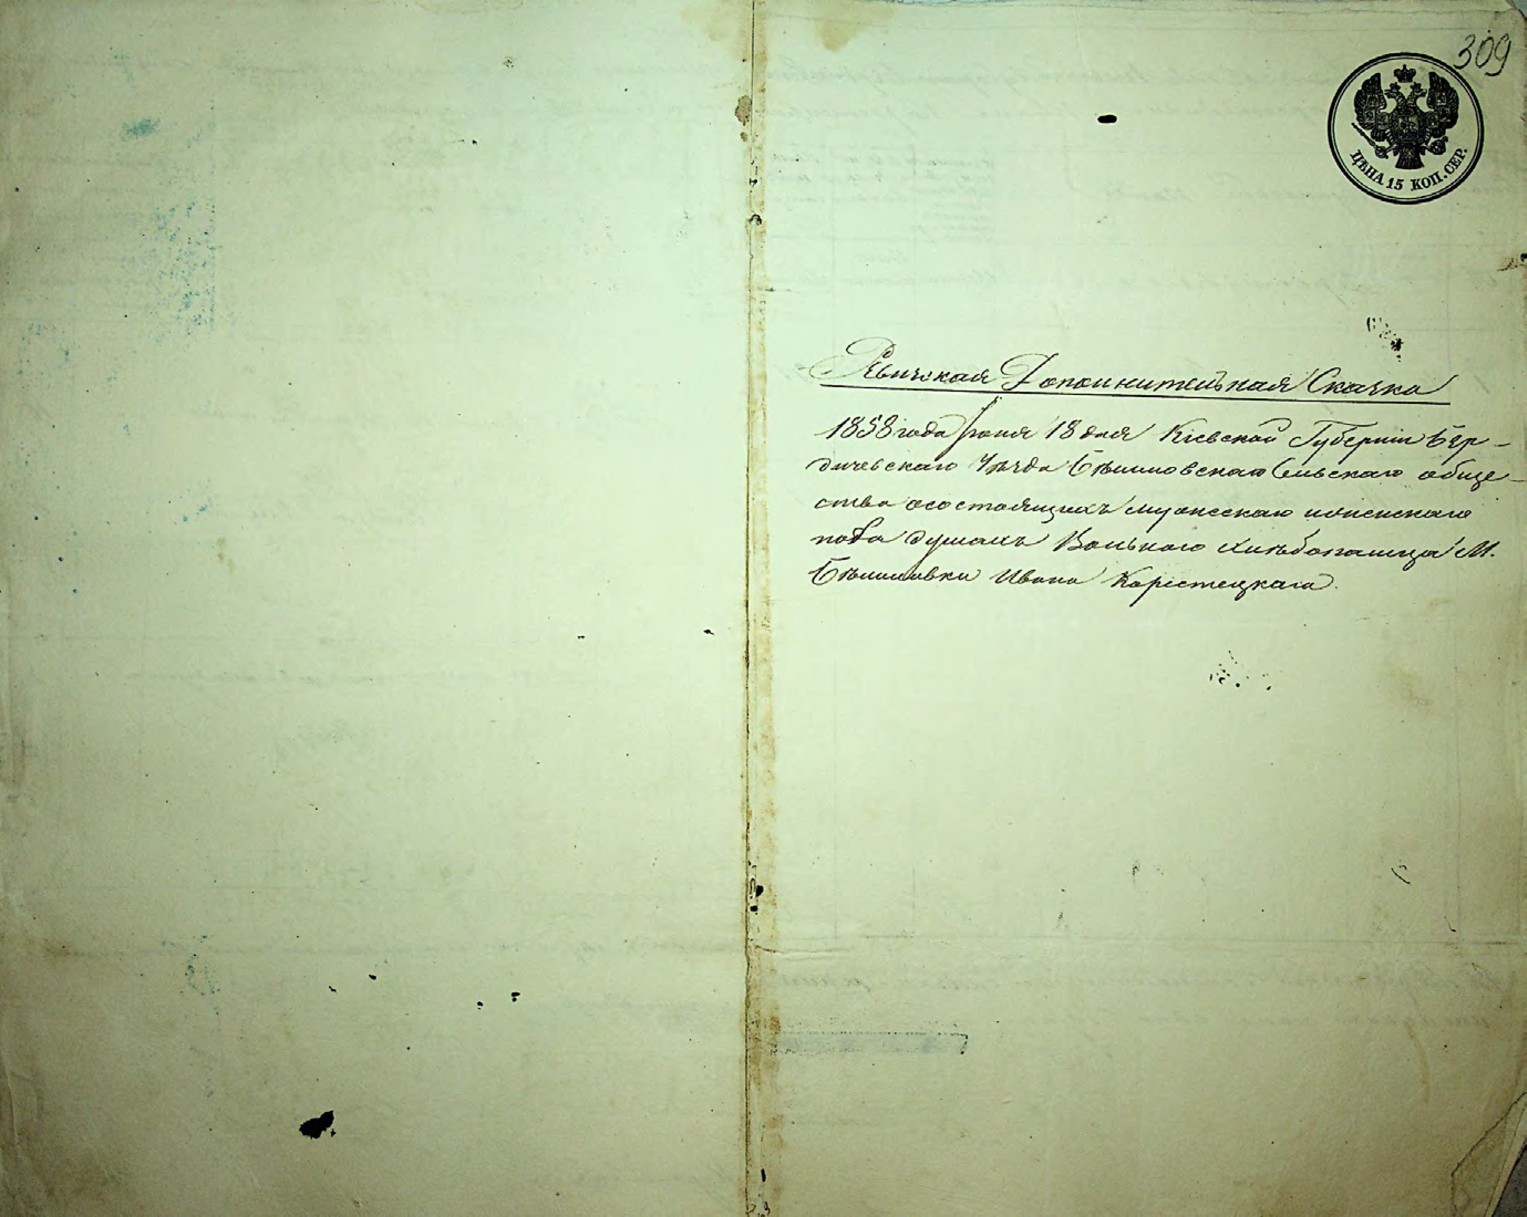 309
ЦѢНА 15 КОП. СЕР.
Ревизская Дополнительная Сказка
1858 года Іюня 18 дня Кіевской Губерніи Бер-
дичевскаго Уѣзда Бѣлиловскаго Сельскаго обще-
ства о состоящихъ мужескаго и женскаго
пола душахъ Вольнаго хлѣбопашца М.
Бѣлиловки Ивана Корistецкаго.